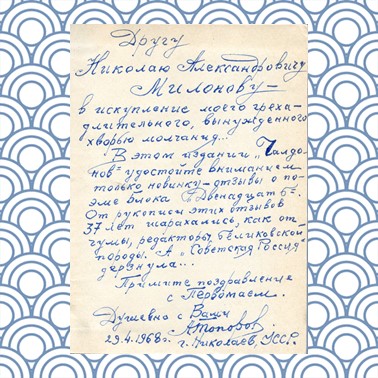 Другу
Николаю Александровичу
Милонову —
в искупление моего греха —
длительного, вынужденного
хворью молчания...
В этом издании „Чалдо-
нов" удостойте вниманием
только новинку - отзывы о по-
эме Блока „Двенадцать".
От рукописи этих отзывов
37 лет шарахались, как от
чумы, редакторы беликовской
породы. А „Советская Россия"
дерзнула...
Примите поздравление
с Первомаем.
Душевно с Вами
А Топоров.
29.4.1968 г. г. Николаев, УССР.